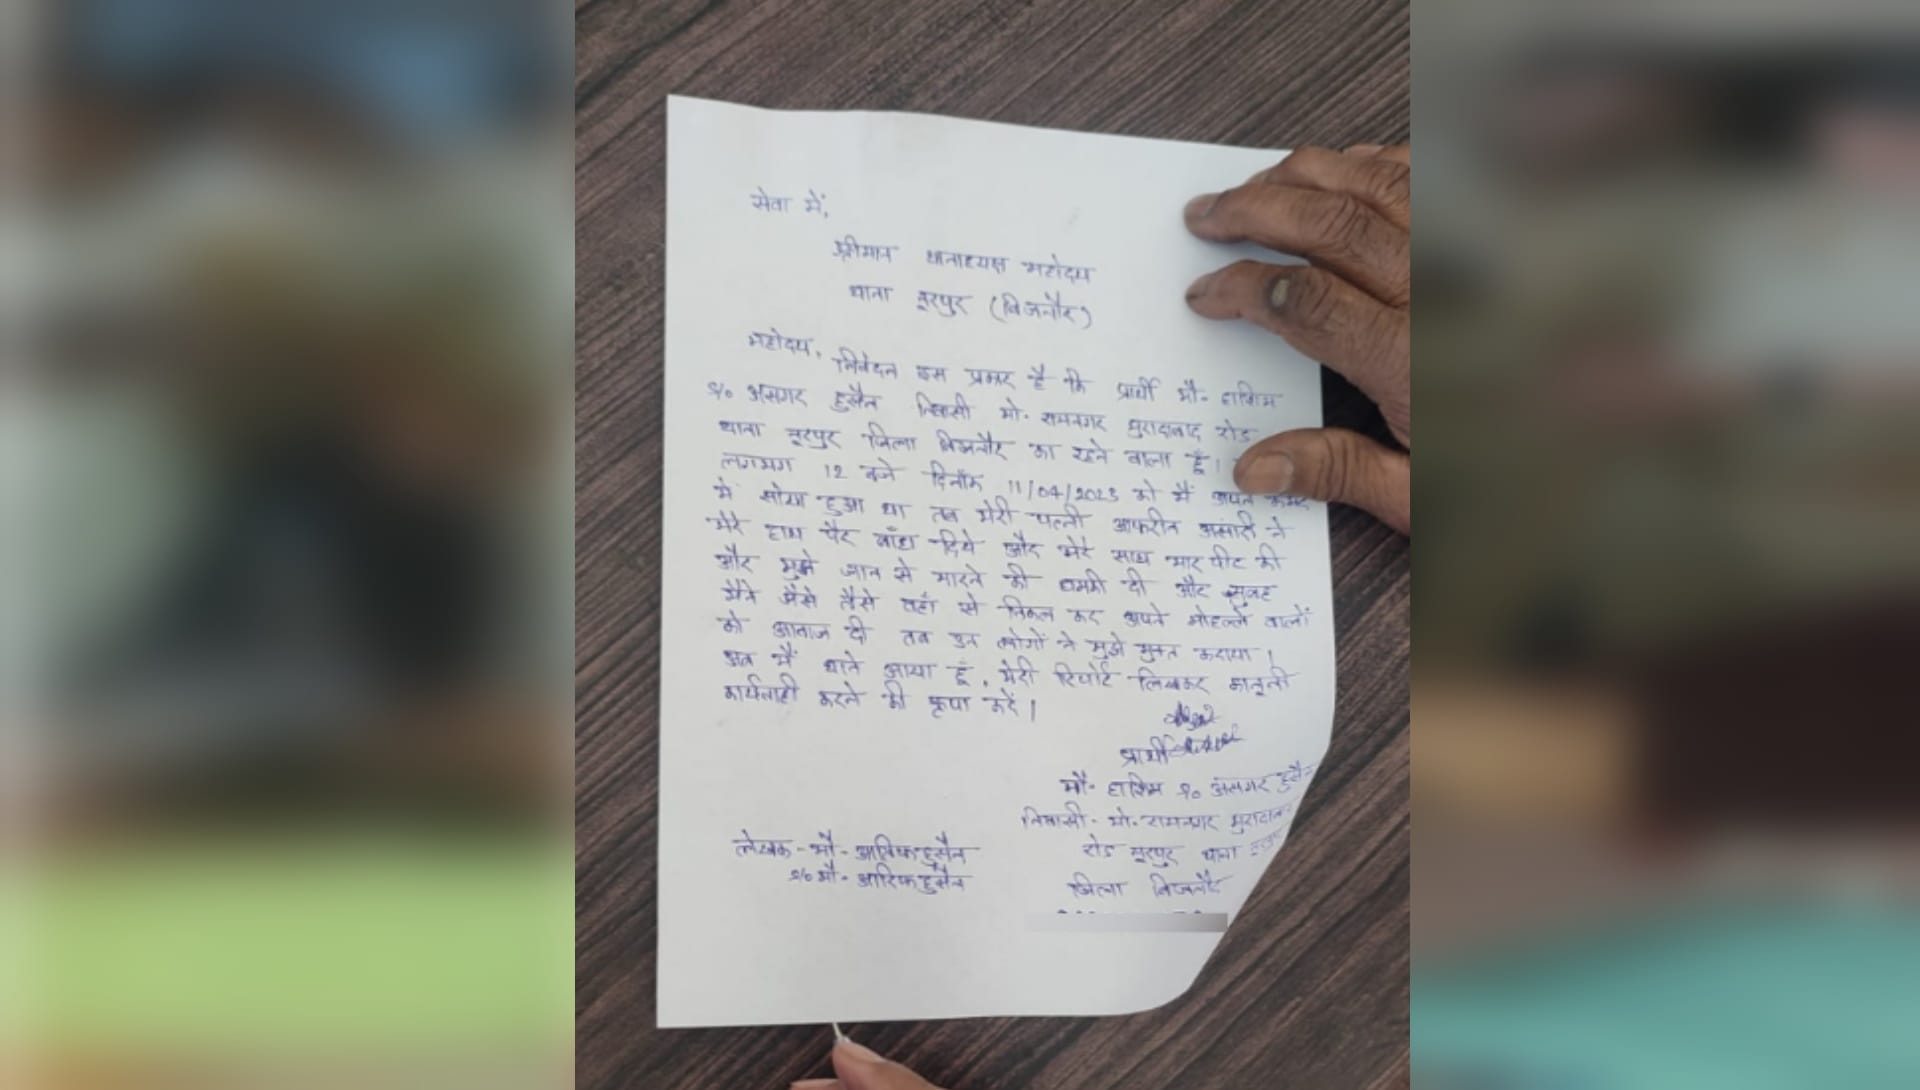 सेवा में,
श्रीमान थानाध्यक्ष महोदय
थाना नूरपुर (बिजनौर)
महोदय,
निवेदन इस प्रकार है कि प्रार्थी मौ- हाशिम
S/o असगर हुसैन निवासी मो- रामनगर मुरादाबाद रोड
थाना नूरपुर जिला बिजनौर का रहने वाला हूँ।
लगभग 12 बजे दिनाँक 11/04/2023 को मैं अपने कमरे
में सोया हुआ था तब मेरी पत्नी आफरीन अंसारी ने
मेरे हाथ पैर बाँध दिये और मेरे साथ मार पीट की
और मुझे जान से मारने की धमकी दी और सुबह
मैंने जैसे तैसे वहाँ से निकल कर अपने मोहल्ले वालों
को आवाज दी तब उन लोगों ने मुझे मुक्त कराया।
अब मैं थाने आया हूँ, मेरी रिपोर्ट लिखकर कानूनी
कार्यवाही करने की कृपा करें।
प्रार्थी
मौ- हाशिम S/o असगर हुसैन
निवासी- मो- रामनगर मुरादाबाद
रोड नूरपुर थाना
जिला बिजनौर
लेखक- मौ- हुसैन
S/o मौ- आरिफ हुसैन